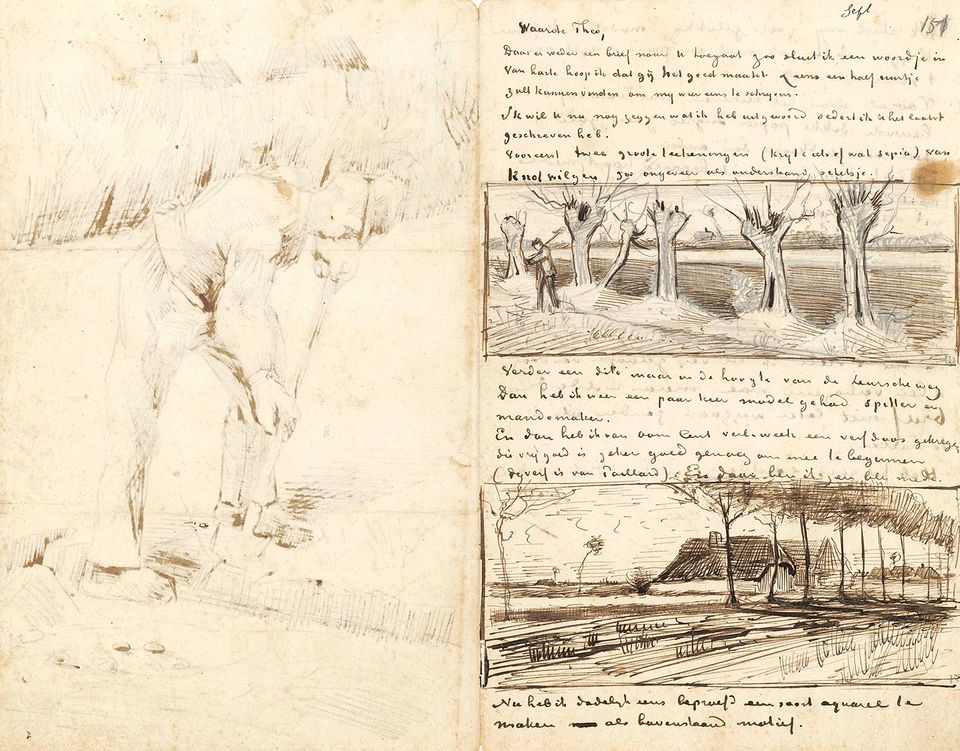 Sept
151
Waarde Theo,
Daar er weder een brief naar U toegaat zoo sluit ik een woordje in
Van harte hoop ik dat gij het goed maakt & eens een half uurtje
zult kunnen vinden om mij weer eens te schrijven.
Ik wil U nu nog zeggen wat ik heb uitgevoerd sedert ik U het laatst
geschreven heb.
Vooreerst twee groote teekeningen (krijt & iets of wat sepia) van
Knotwilgen zoo ongeveer als onderstaand schetsje.
Verder een dito maar in de hoogte van de Leurscheweg
Dan heb ik weer een paar keer model gehad spitter en
mandemaker.
En dan heb ik van oom Cent verl. week een verfdoos gekregen
die vrij goed is zeker goed genoeg om mee te beginnen
(de verf is van Paillard). En daar ben ik zeer blij mede.
Nu heb ik dadelijk eens beproefd een soort aquarel te
maken als bovenstaand motief.